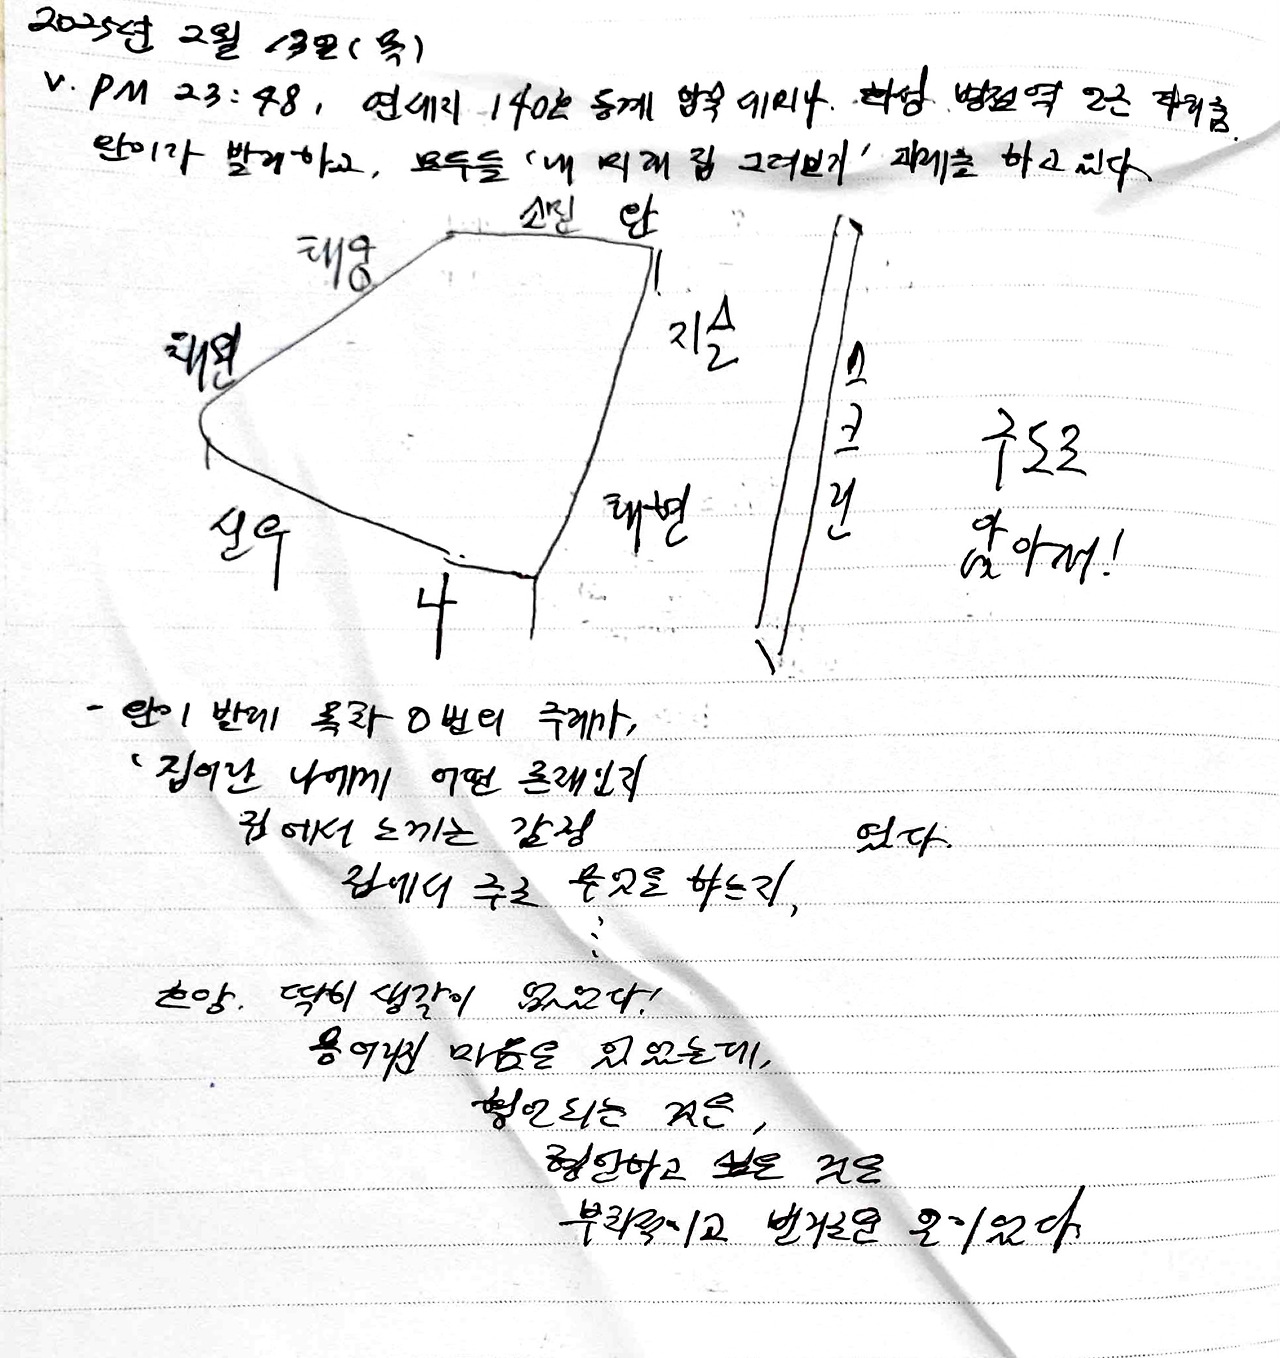 2025년 2월 13일(목)
V. PM 23:48, 연세지 140호 동계 합숙 세미나. 화성 병점역 2근 자취춤.
안이가 발제하고, 모두들 '내 미래 집 그려보기' 과제를 하고 있다
소민 안
태웅
태연
지솔
스크린
구도로
앉아서!
태현
신우
나
- 안이 발제 목차 0번의 주제가,
'집이란 나에게 어떤 존재인지
집에서 느끼는 감정 였다.
집에서 주로 무엇을 하는지,
⋮
흐앙. 딱히 생각이 없었다!
마음은 있었는데,
것은,
하고 싶은 것은
이고 번거로운 일이었다